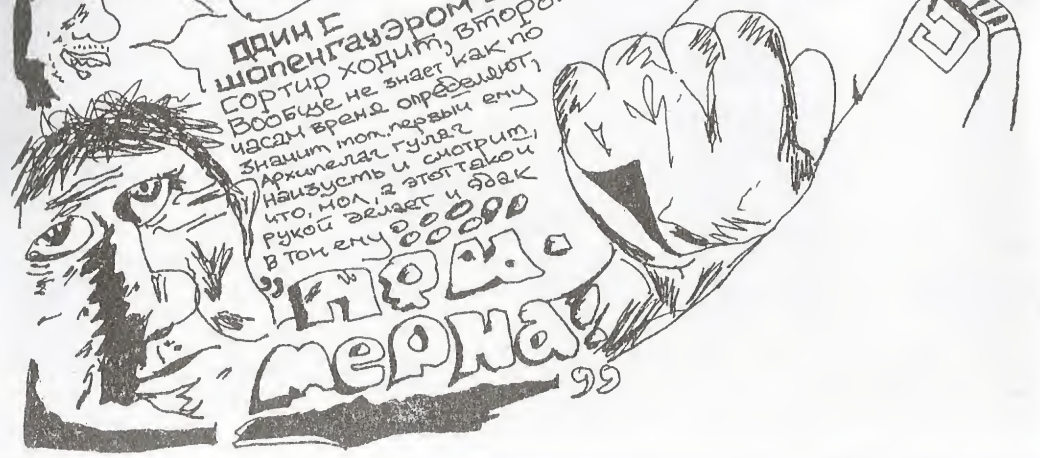 один с
шопенгауэром
сортир ходит, второ
вообще не знает как по
часам время определяют,
значит тот, первый ему
Архипелаг гулаг
наизусть и смотрит,
что, мол, а этот такой
рукой делает и эдак
в тон ему
мерна!"